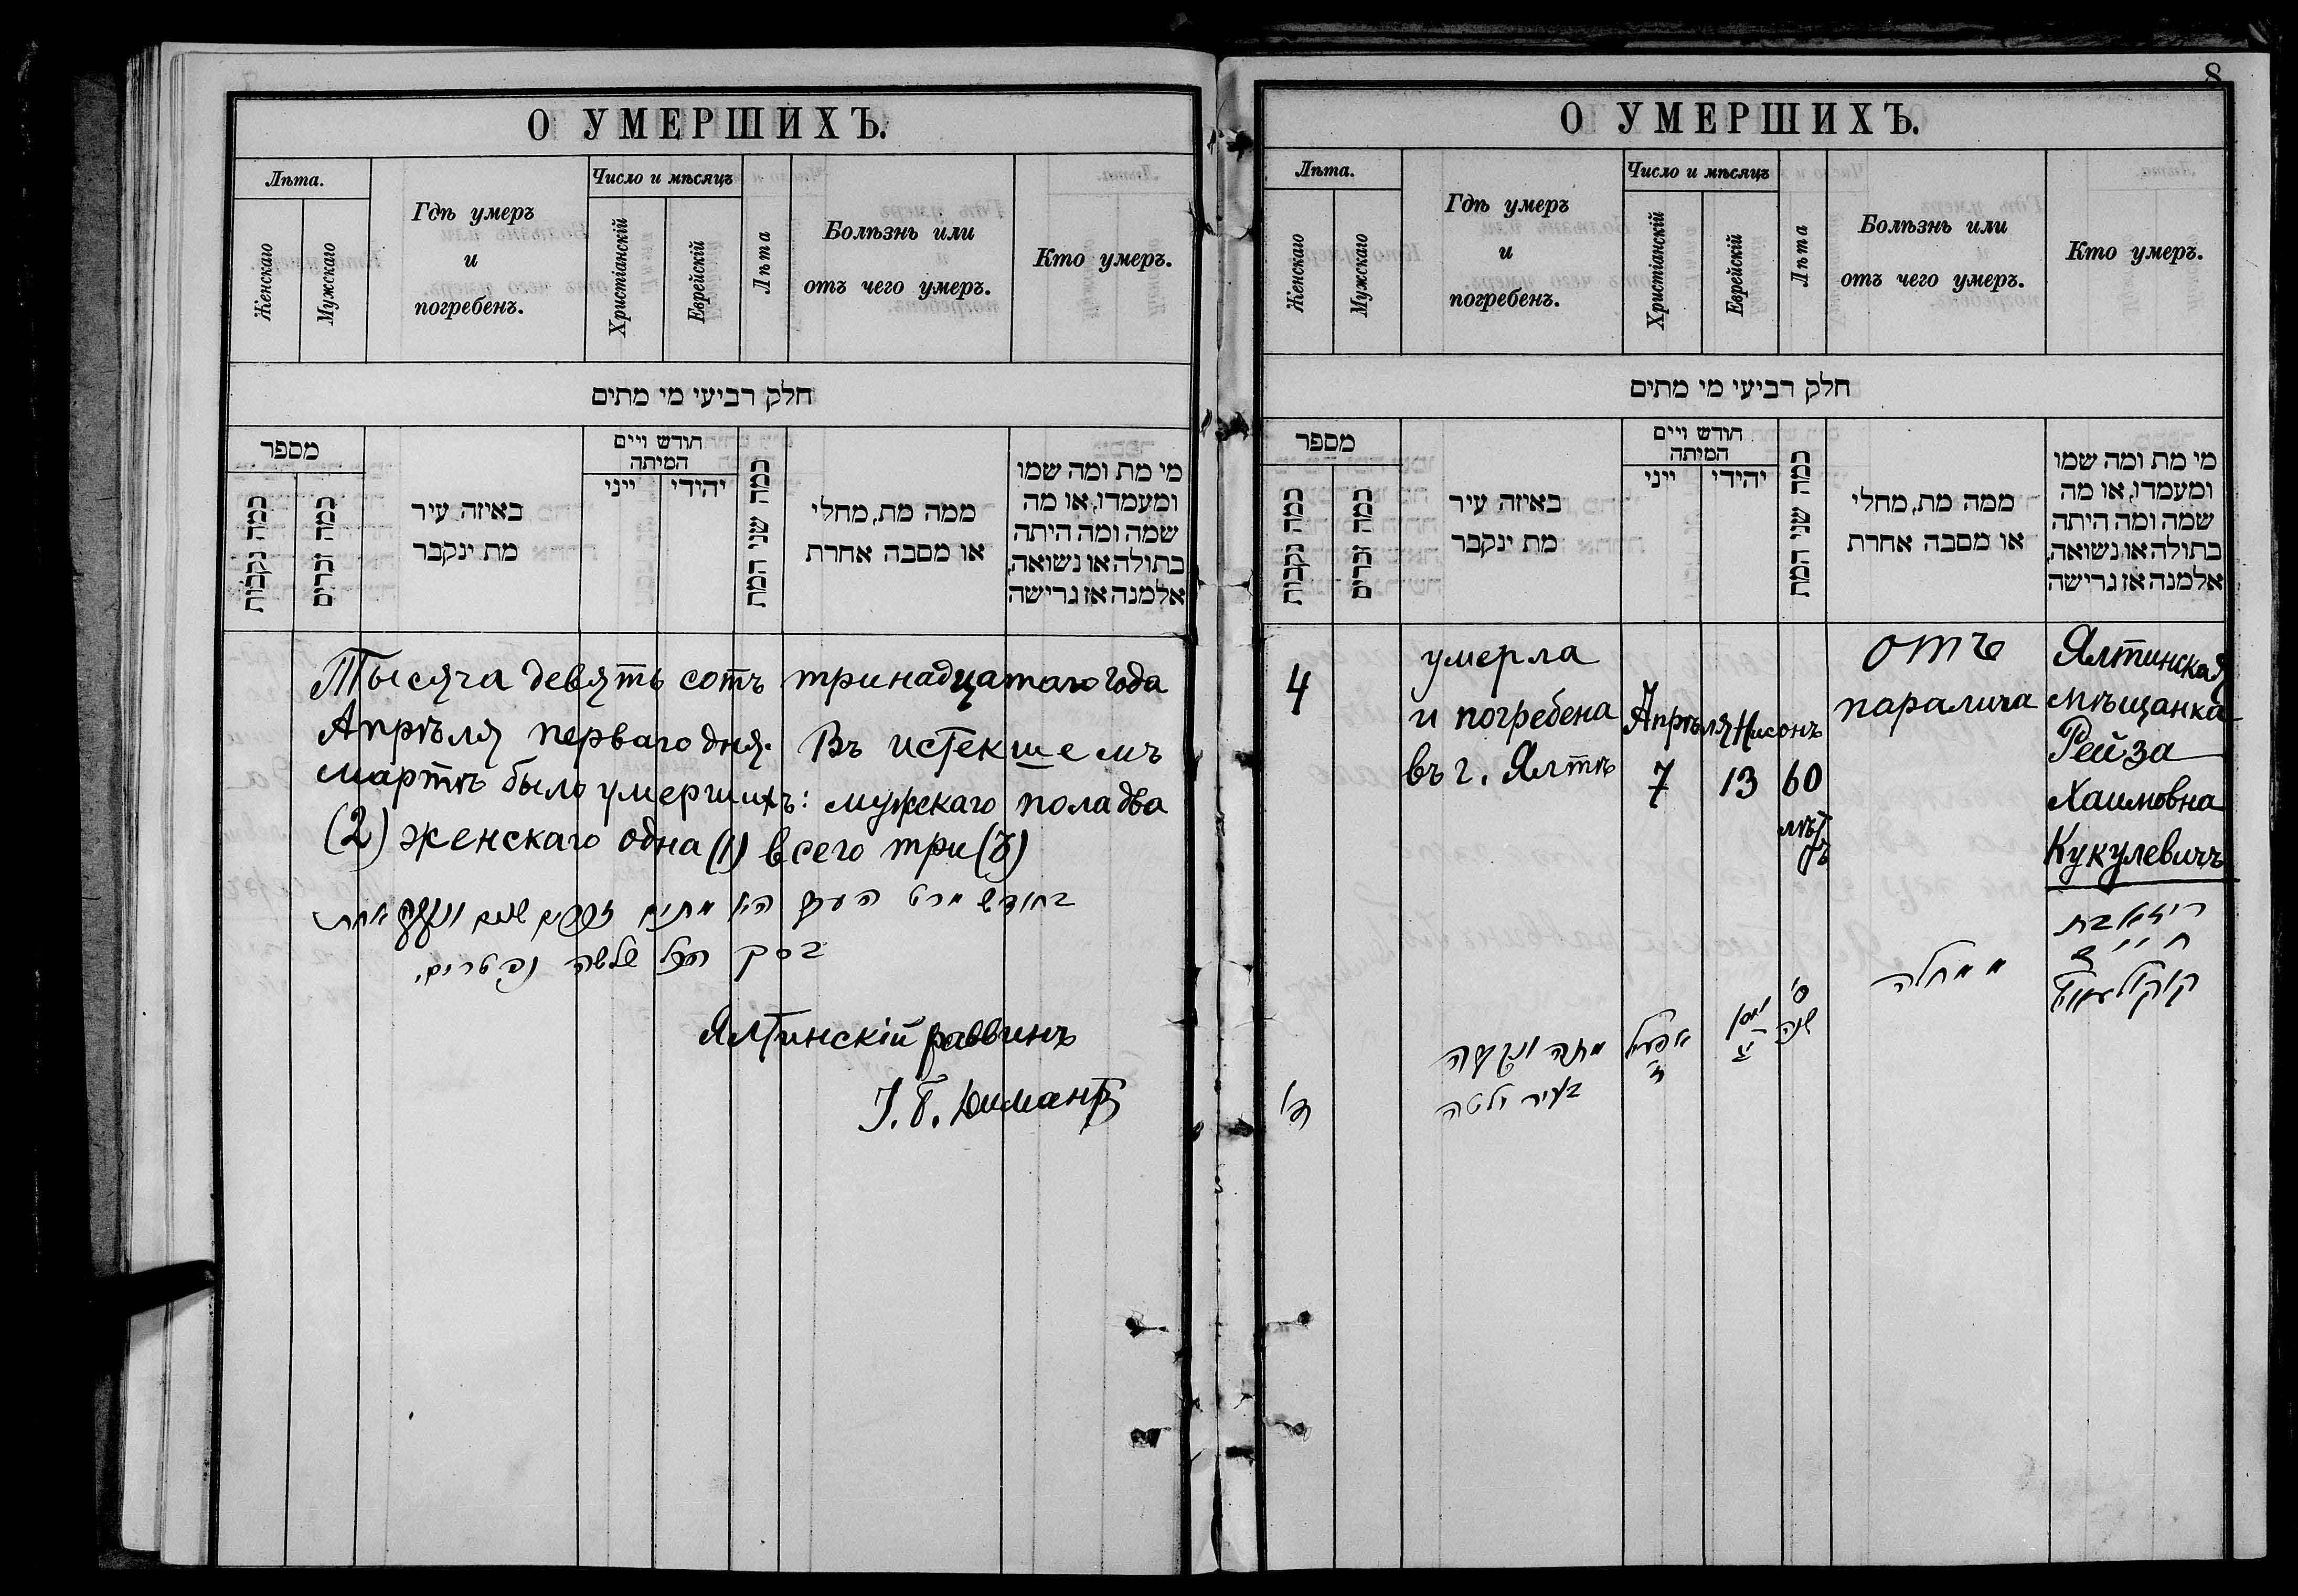 О УМЕРШИХЪ.
Лѣта.
Женскаго
Мужскаго
Гдѣ умеръ
и
погребенъ.
Число и мѣсяцъ
Христіанскій
Еврейскій
Лѣта
Болѣзнь или
отъ чего умеръ.
Кто умеръ.
חלק רביעי מי מתים
מספר
כמה נקבות
כמה זכרים
באיזה עיר
מת ינקבר
חודש ויים
המיתה
ייני
יהודי
כמה שני המת
ממה מת, מחלי
או מסבה אחרת
מי מת ומה שמו
ומעמדו, או מה
שמה ומה היתה
בתולה או נשואה,
אלמנה אז גרישה
Тысяча девять сотъ тринадцатаго года
Апрѣля перваго дня. Въ истекшемъ
мартѣ было умершихъ: мужскаго пола два
(2) женскаго одна (1) всего три (3)
בחודש מרט העבר היו מתים זכרים שנים ונקבה אחת
בסך הכל שלשה נפטרים.
Ялтинскій раввинъ
8
О УМЕРШИХЪ.
Лѣта.
Женскаго
Мужскаго
Гдѣ умеръ
и
погребенъ.
Число и мѣсяцъ
Христіанскій
Еврейскій
Лѣта
Болѣзнь или
отъ чего умеръ.
Кто умеръ.
חלק רביעי מי מתים
מספר
כמה נקבות
כמה זכרים
באיזה עיר
מת ינקבר
חודש ויים
המיתה
ייני
יהידי
כמה שני המת
ממה מת, מחלי
או מסבה אחרת
מי מת ומה שמו
ומעמדו, או מה
שמה ומה היתה
בתולה או נשואה,
אלמנה אז גרישה
4
умерла
и погребена
въ г. Ялтѣ
Апрѣля
7
Нисонъ
13
60
лѣтъ
отъ
паралича
Ялтинская
мѣщанка
Рейза
Хаимовна
Кукулевичъ
מתה ונקברה
בעיר ילטה
אפריל
ז׳
ניסן
יג
ס׳
שנה
ממחלה
ריזא בת
חיים
קוקולעוויץ